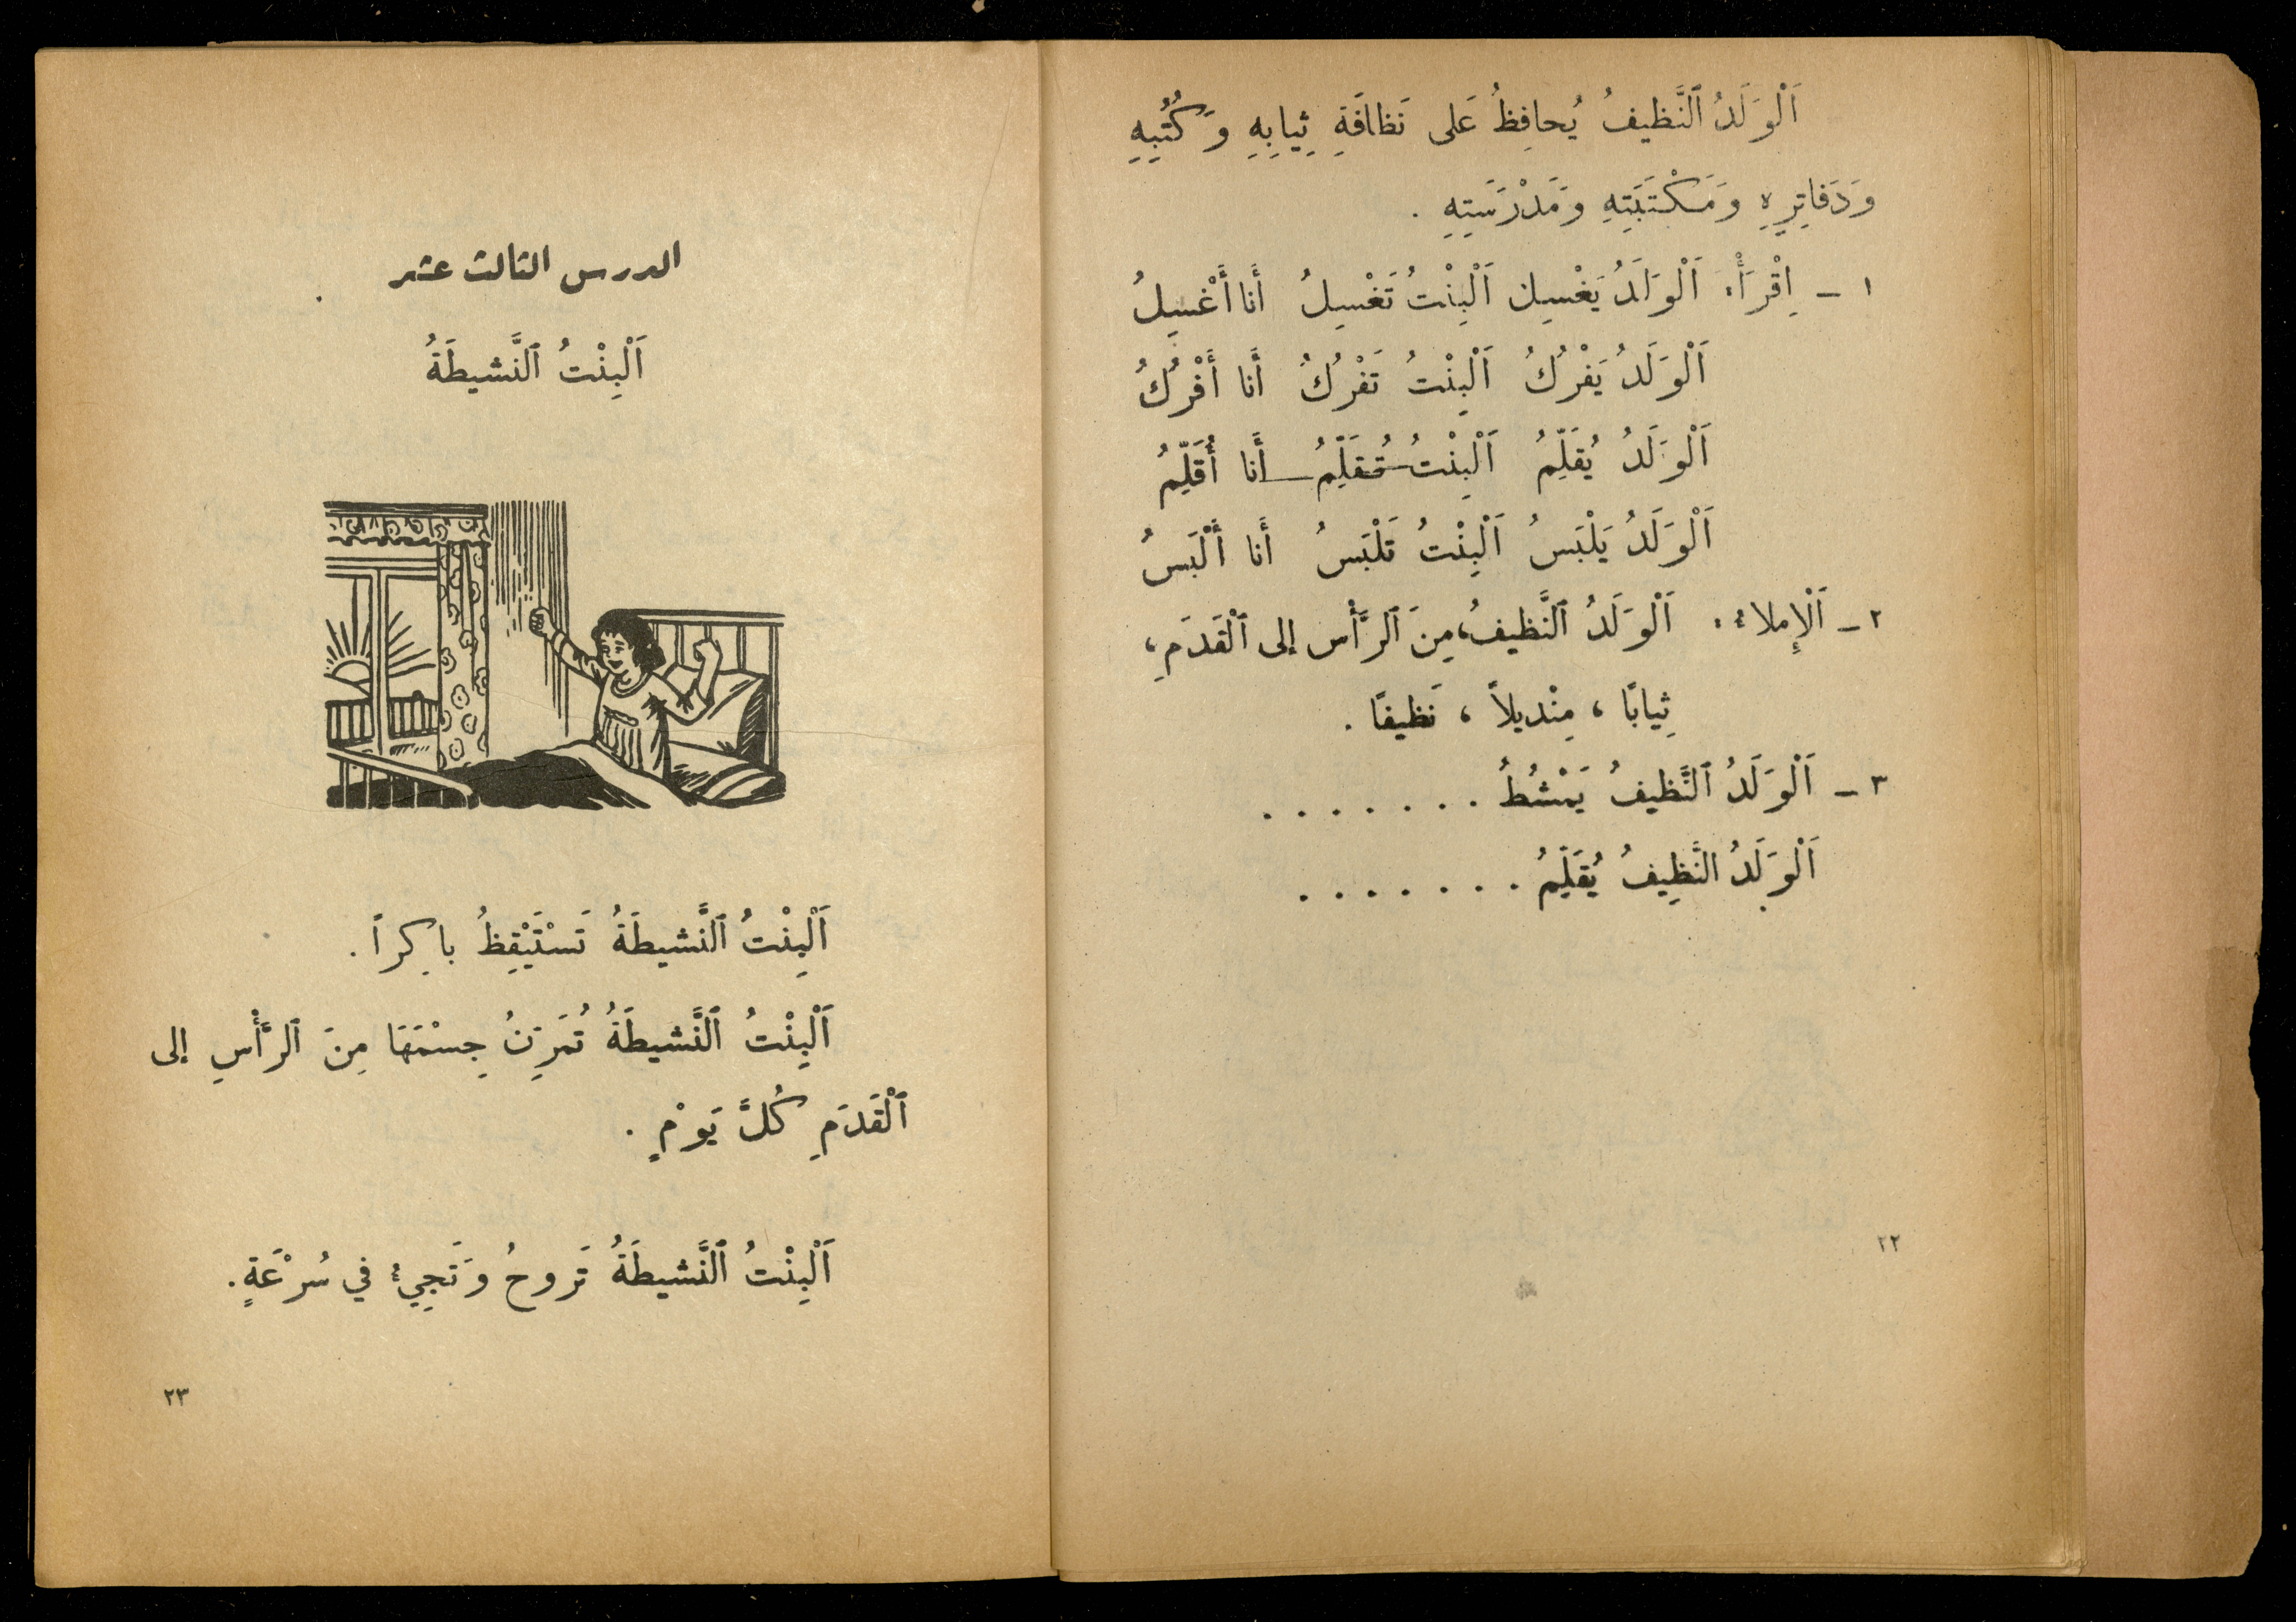 اَلْوَلَدُ ٱلنَّظيفُ يُحافِظُ عَلى نَظافَةِ ثِيابِهِ وَكُتُبِهِ
وَدَفاتِرِهِ وَمَكْتَبَتِهِ وَمَدْرَسَتِهِ .
١ - اِقْرَأْ: اَلْوَلَدُ يَغْسِلُ اَلْبِنْتُ تَغْسِلُ أَنا أَغْسِلُ
اَلْوَلَدُ يَفْرُكُ اَلْبِنْتُ تَفْرُكُ أَنا أَفْرُكُ
اَلْوَلَدُ يُقَلِّمُ اَلْبِنْتُ تُقَلِّمُ أَنا أُقَلِّمُ
اَلْوَلَدُ يَلْبَسُ اَلْبِنْتُ تَلْبَسُ أَنا أَلْبَسُ
٢ - اَلْإِملاءُ: اَلْوَلَدُ ٱلنَّظيفُ، مِنَ ٱلرَّأْس إلى ٱلْقَدَمِ،
ثِيابًا ، مِنْديلاً ، نَظيفًا .
٣ - اَلْوَلَدُ ٱلنَّظيفُ يَمْشُطُ . . . . . . .
اَلْوَلَدُ النَّظِيفُ يُقَلِّمُ . . . . . . .
٢٢
الدرس الثالث عشر
اَلْبِنْتُ ٱلنَّشيطَةُ
اَلْبِنْتُ ٱلنَّشيطَةُ تَسْتَيْقِظُ باكِراً .
اَلْبِنْتُ ٱلنَّشيطَةُ تُمَرِّنُ جِسْمَهَا مِنَ ٱلرَّأْسِ إلى
ٱلْقَدَمِ كُلَّ يَوْمٍ .
اَلْبِنْتُ ٱلنَّشيطَةُ تَروحُ وَتَجِيءُ في سُرْعَةٍ .
٢٣